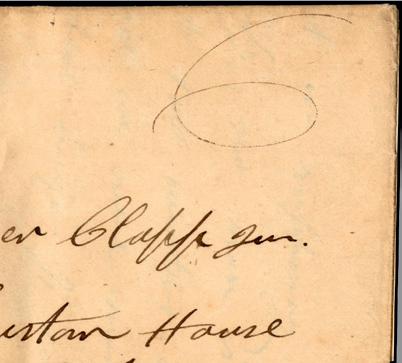 6
er Clapp Jun.
ustom House